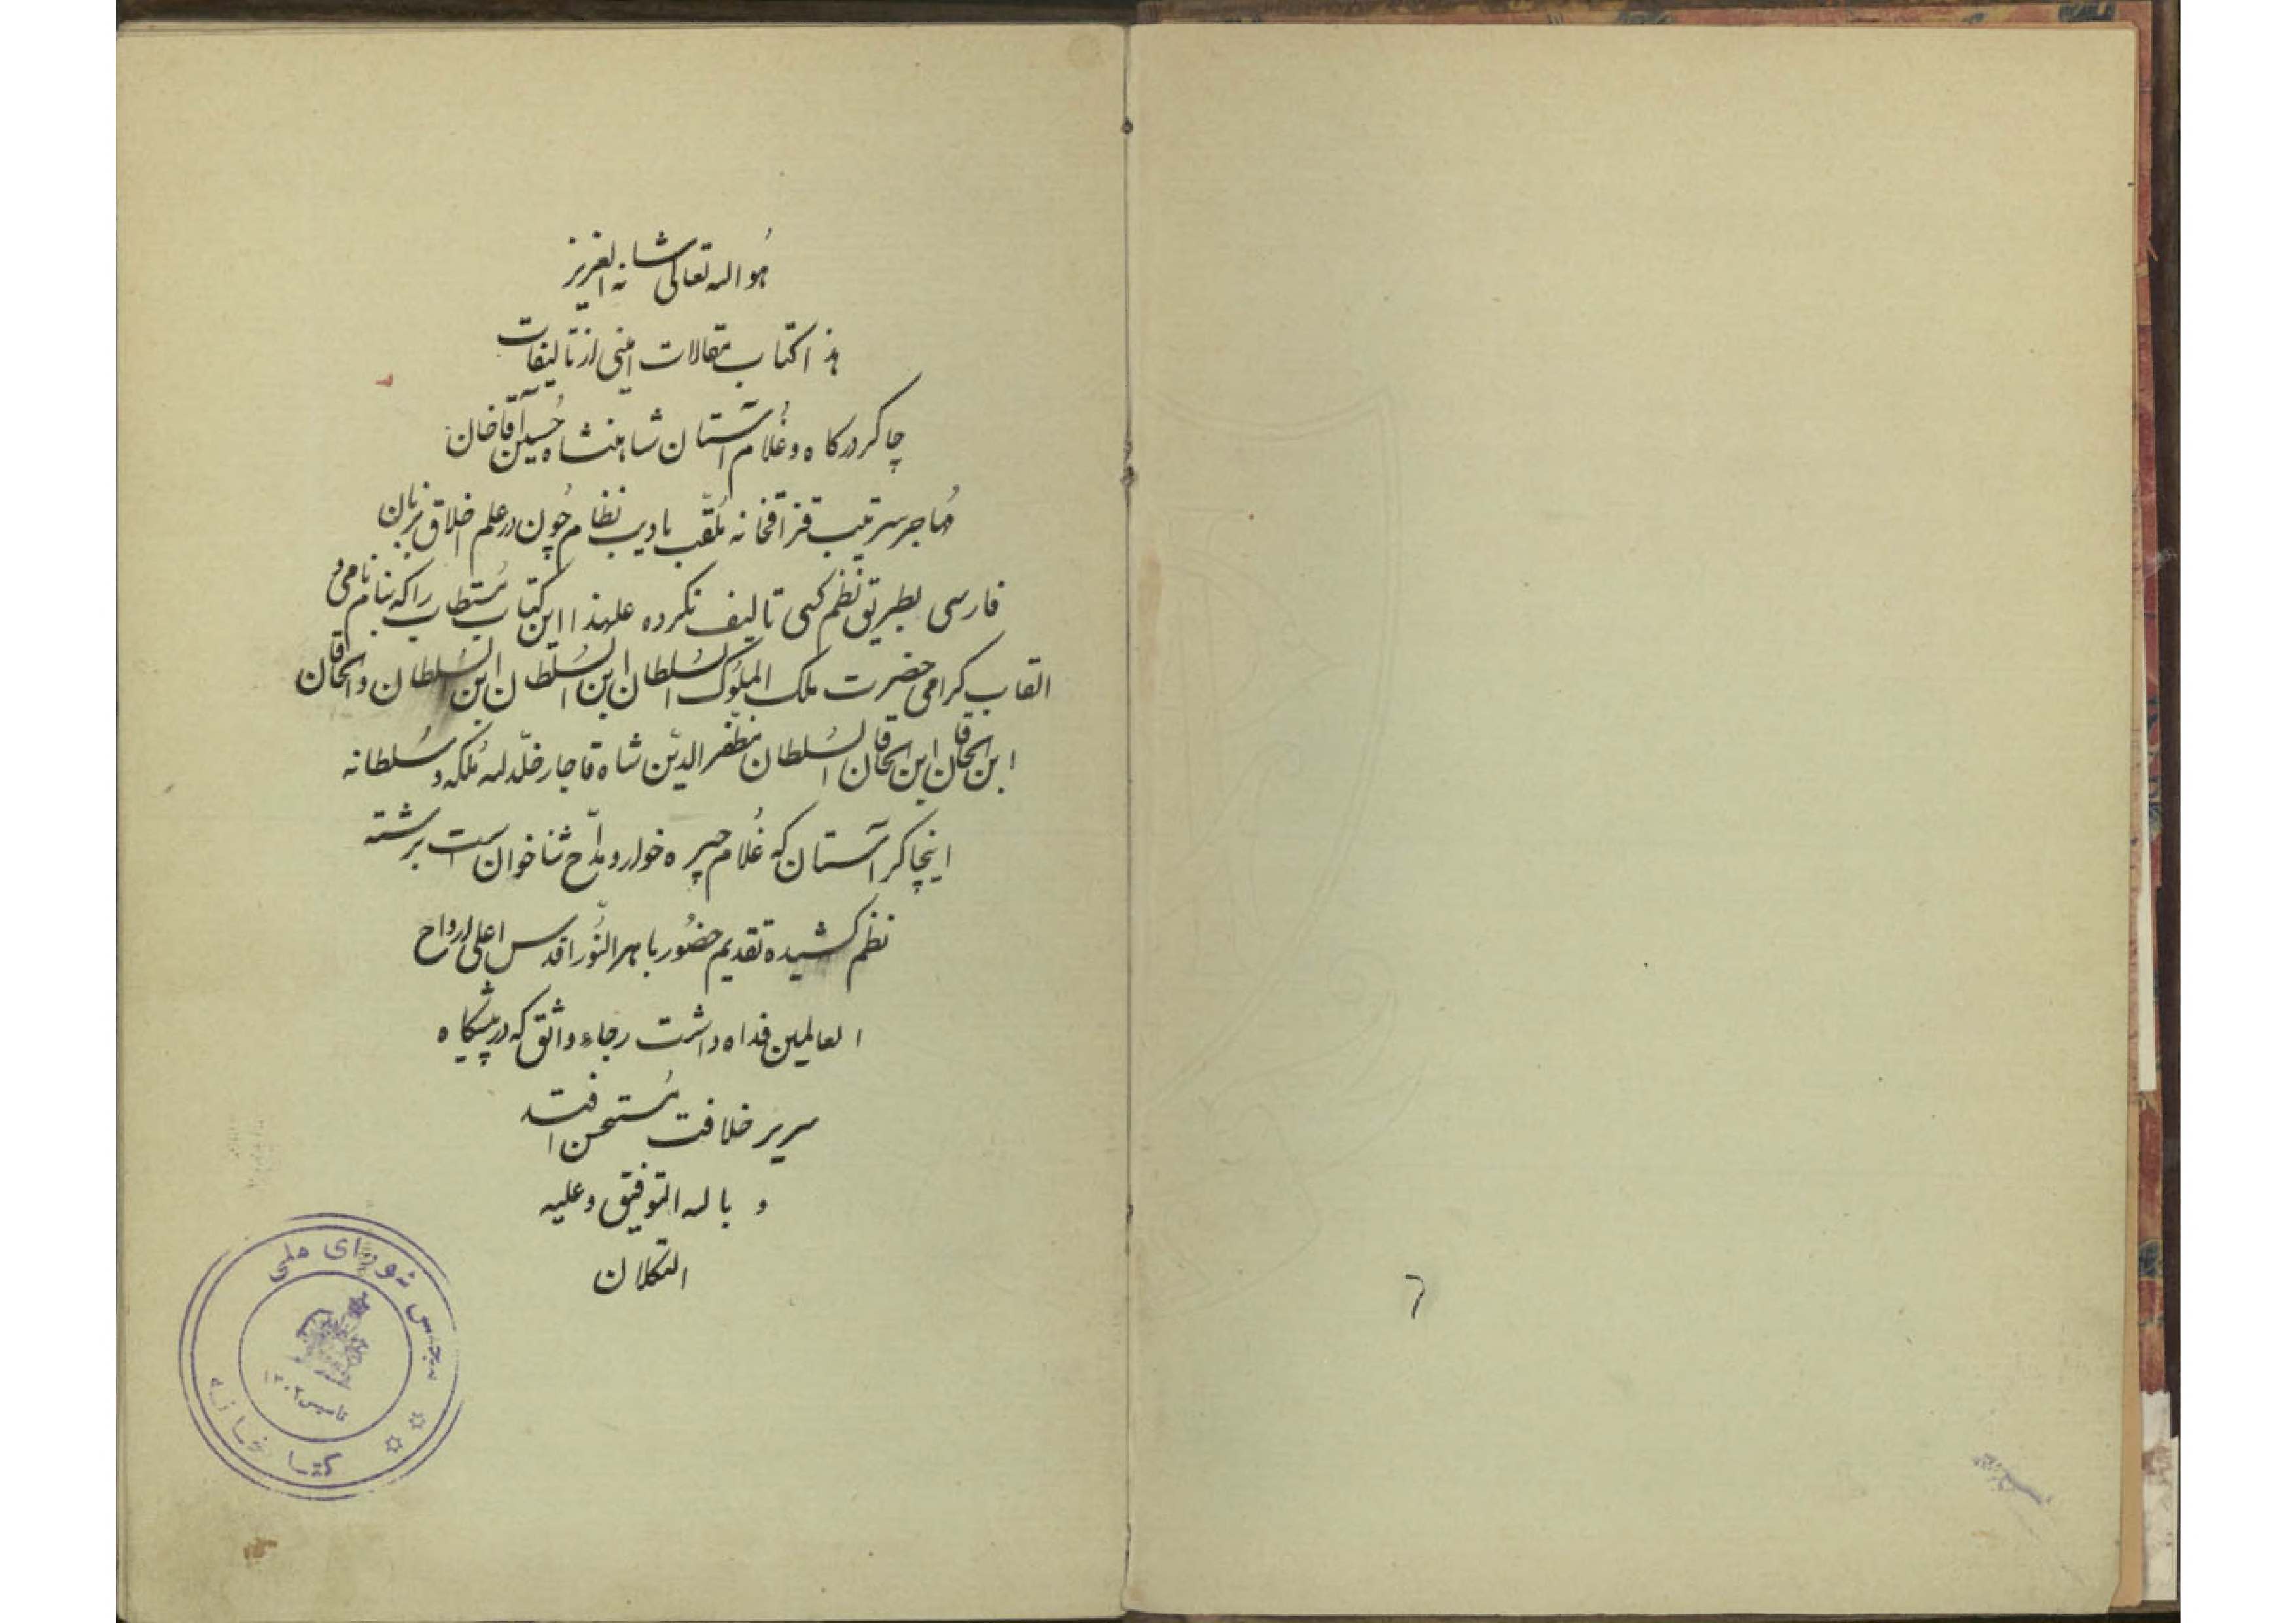 هو الله تعالی شانه العزیز
هذا کتاب مقالات امینی از تالیفات
چاکر درکاه و غُلام آستان شاهنشاه حُسین آقاخان
مُهاجر سرتیپ قزاقخانه مُلقّب بادیب نظام چُون در علم اخلاق بزبان
فارسی بطریق نظم کسی تالیف نکرده علیهذا این کتاب مُستطاب را که بنام نامی و
القاب کرامی حضرت ملک المُلوک السُلطان ابن السُلطان ابن السُلطان و الخاقان
ابن الخاقان ابن الخاقان السُلطان مظفّر الدیّن شاه قاجار خلّد الله مُلکه و سُلطانه
اینچاکر آستان که غُلام جیره خوار و مدّاح ثنا خوان است برشته
نظم کشیده تقدیم حضُور باهر النُّور اقدس اعلی ارواح
العالمین فداه داشت رجاء واثق که در پیشکاه
سریر خلافت مُستحسن افتد
و بالله التوفیق و علیه
التکلان
مجلس شورای ملی
تاسیس ۱۳۰۲
کتابخانه
۶